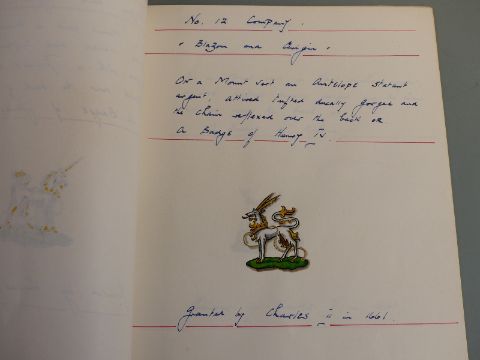 No. 12 Company.
"Blazon and Origin".
On a Mount vert an Antelope statant
argent attired tufted ducally gorged and
the chain reflexed over the back or
A Badge of Henry IV.
Granted by Charles II in 1661.